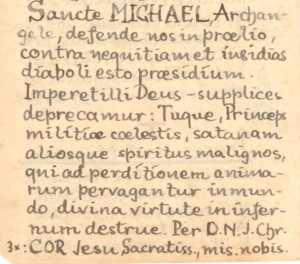 Sancte MICHAEL, Archan-
gele, defende nos in prœlio,
contra nequitiam et insidias
diaboli esto præsidium.
Imperet illi Deus - supplices
deprecamur: Tuque, Princeps
militiæ cœlestis, satanam
aliosque spiritus malignos,
qui ad perditionem anima-
rum pervagantur in mun-
do, divina virtute in infer-
num destrue. Per D.N.J. Chr.
3x: COR Jesu Sacratiss., mis. nobis.